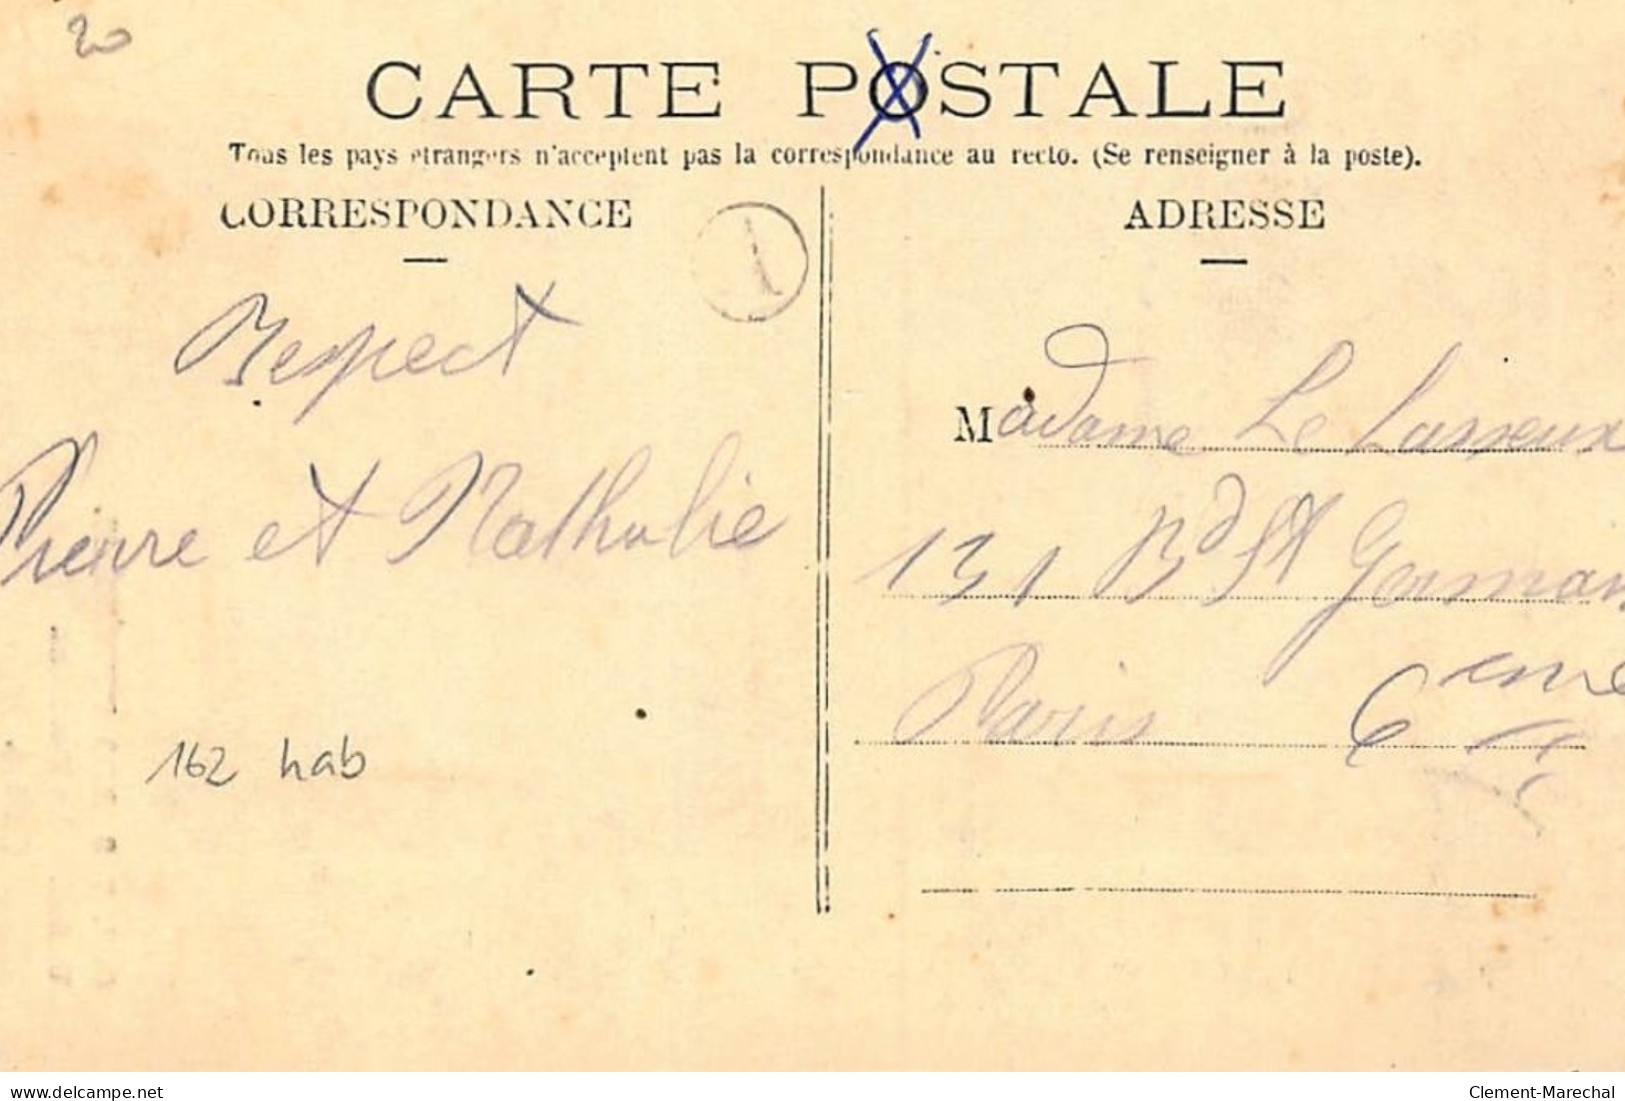 20
CARTE POSTALE
Tous les pays etrangers n'acceptent pas la correspondance au recto. (Se renseigner à la poste).
CORRESPONDANCE
ADRESSE
1
Respect
Pierre et Nathalie
162 hab
Madame Le Lasseux
131 Bd St Germain
Paris 6eme
delcampe.net
Clement-Marechal